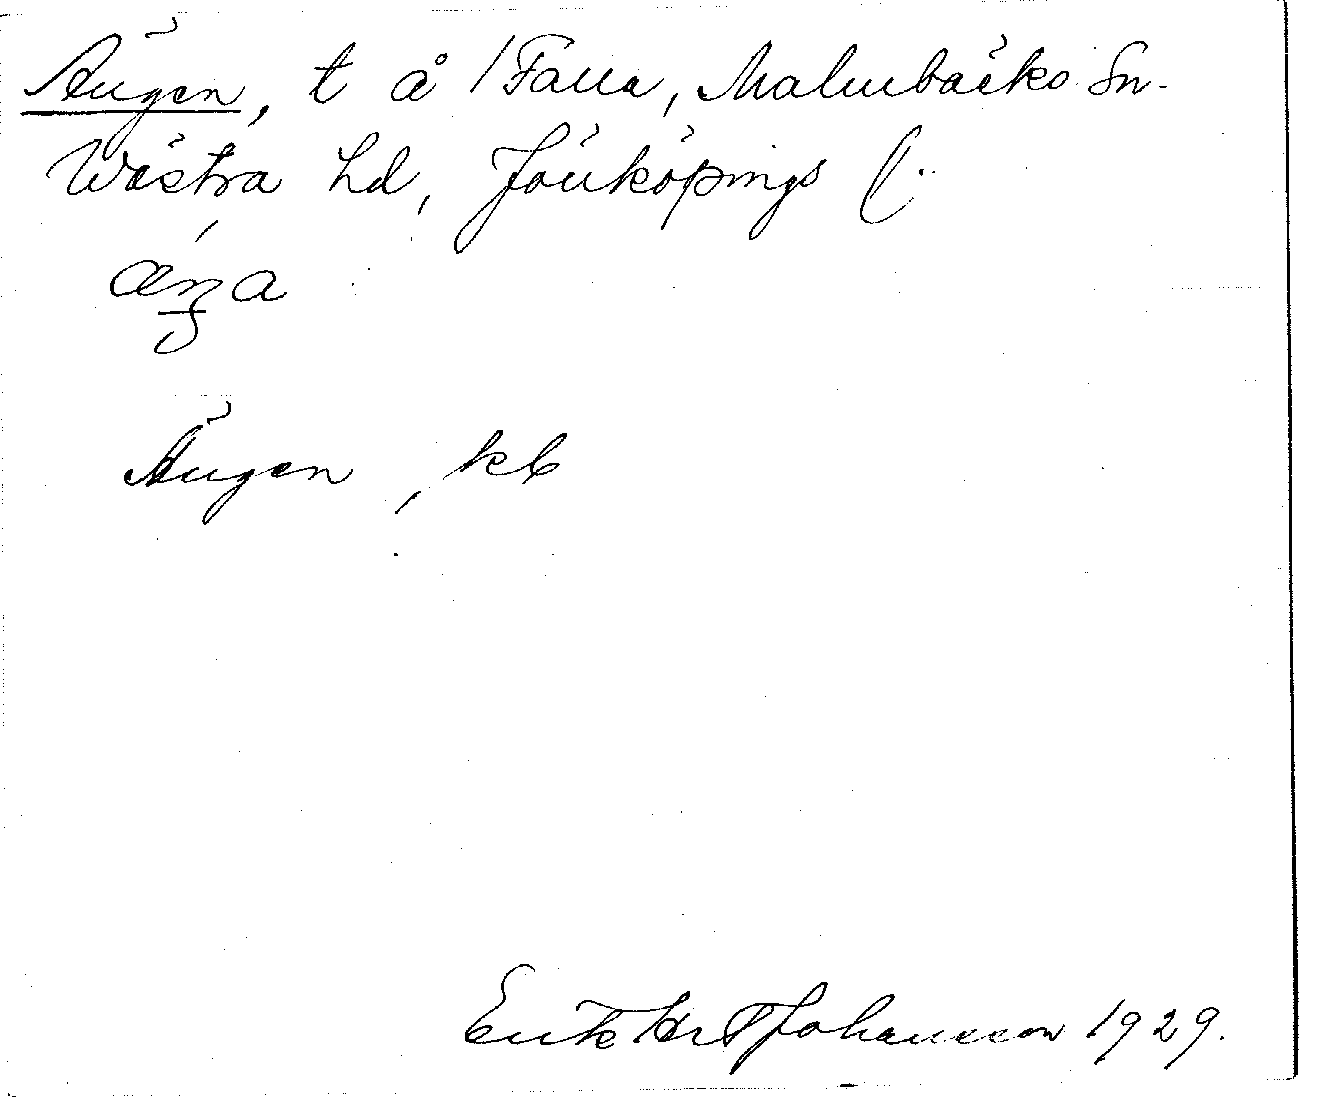 Ängen, t å /Falla, Malmbäcks Sn.
Wästra hd, Jönköpings l.
Ängen, kb
Johansson 1929.